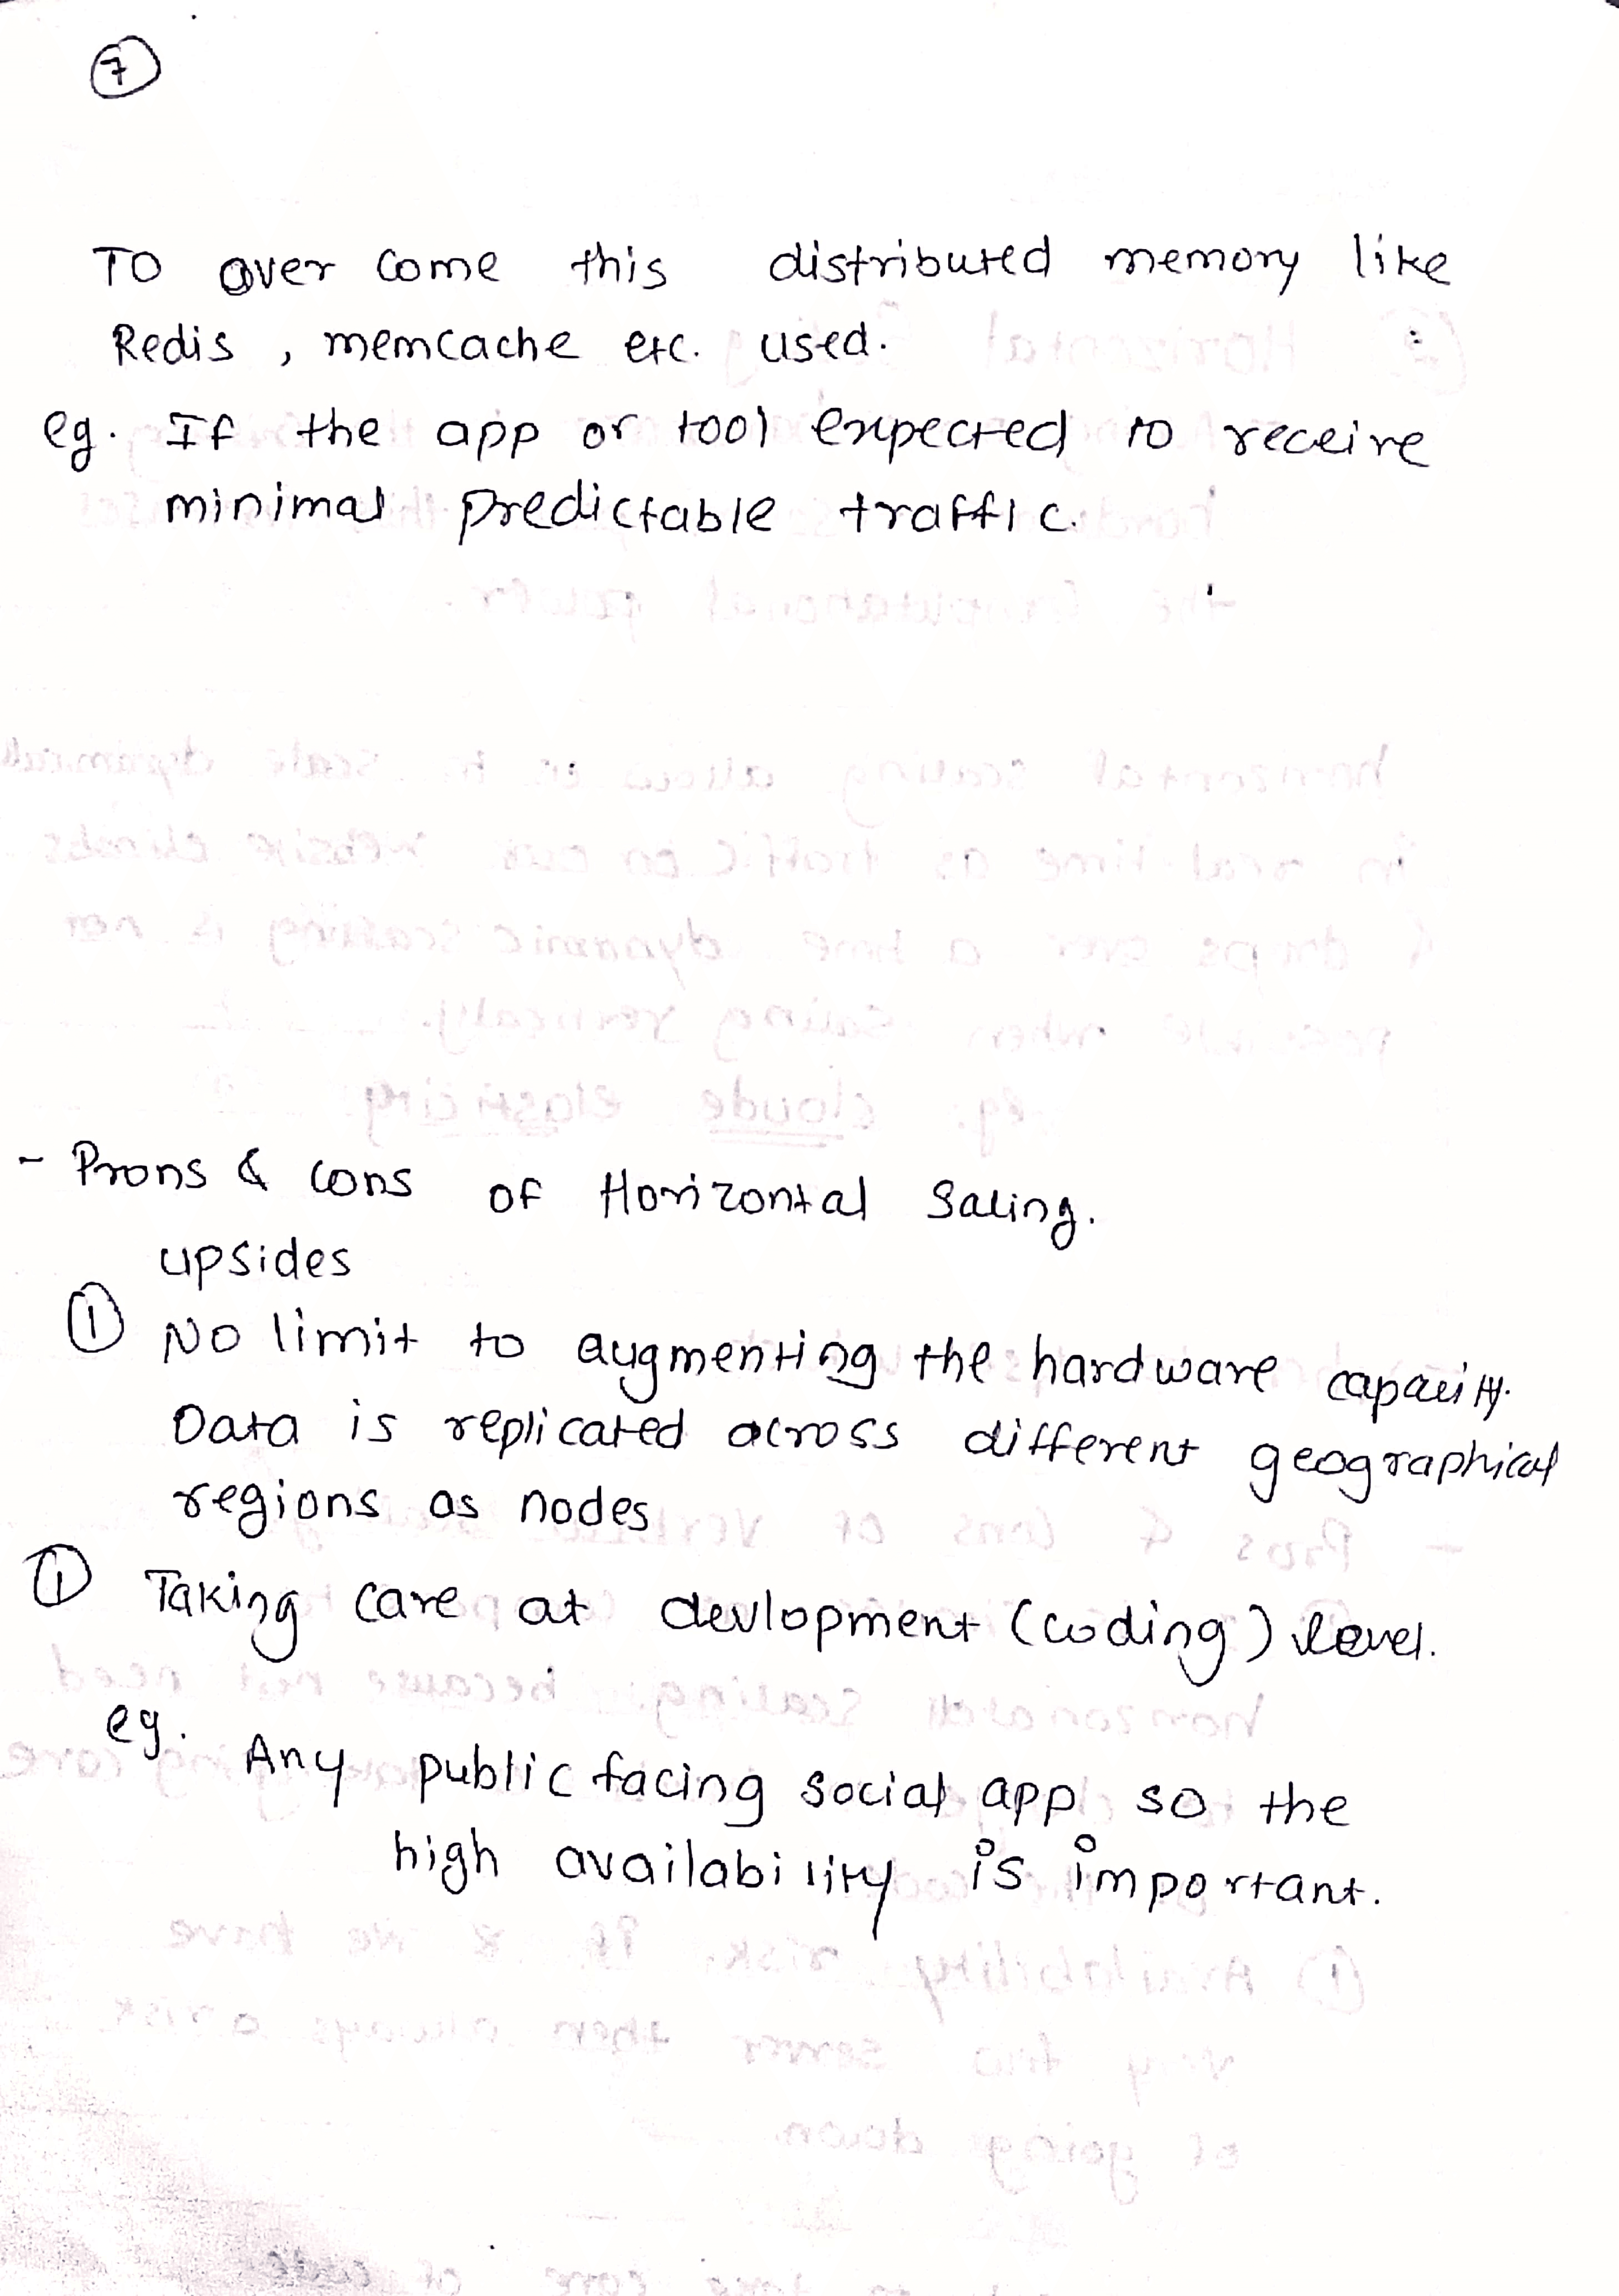 7
TO over come this distributed memory like
Redis , memcache etc. used.
eg. If the app or tool expected to receive
minimal predictable traffic.
- Prons & cons of Horizontal Saling.
upsides
① No limit to augmenting the hardware capacity.
Data is replicated across different geographical
regions as nodes
① Taking care at devlopment (coding) level.
eg. Any public facing social app so the
high availability is important.